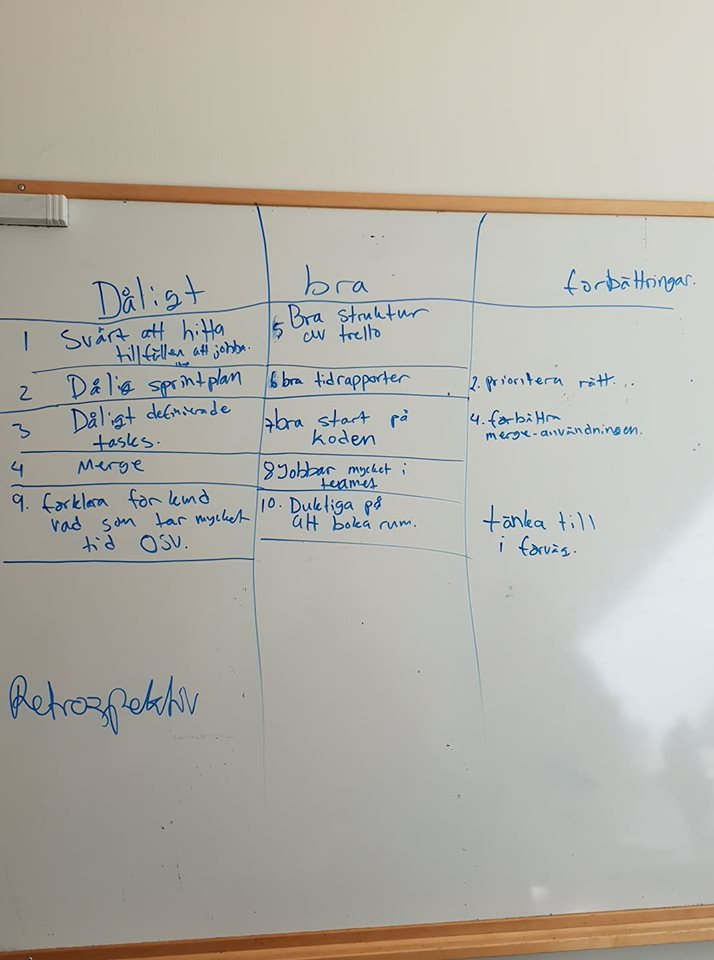 Dåligt
bra
förbättringar.
1 Svårt att hitta
tillfällen att jobba.
5 Bra struktur
av trello
2 Dålig sprintplan
6 bra tidrapporter
2. prioritera rätt.
3 Dåligt definierade
tasks.
7 bra start på
koden
4. förbättra
merge-användningen.
4 Merge
8 Jobbar mycket i
teamet
9. förklara för kund
vad som tar mycket
tid OSV.
10. Duktiga på
att boka rum.
tänka till
i förväg.
Retrospektiv